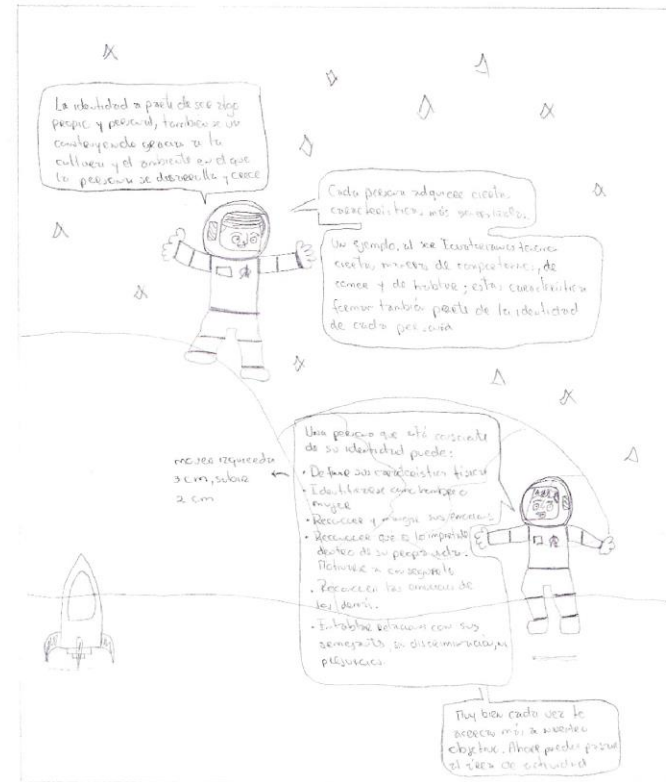 La identidad a parte de ser algo
propio y personal, también se va
construyendo gracias a la
cultura y el ambiente en el que
la persona se desarrolla y crece
Cada persona adquiere ciertas
características más generalizadas.
Un ejemplo, al ser
ciertas maneras de comportarnos, de
comer y de hablar; estas características
forman también parte de la identidad
de cada persona
Una persona que está consciente
de su identidad puede:
• Definir sus características físicas
• Identificarse como hombre o
mujer
• Reconocer y manejar sus emociones
• Reconocer que es lo importante
dentro de su propia vida.
Motivarse a conseguirlo
• Reconocer las emociones de
los demás.
• Entablar relaciones con sus
semejantes, sin discriminación, ni
prejuicios.
mover izquierda
3 cm, subir
2 cm
Muy bien cada vez te
acercas más a nuestro
objetivo. Ahora puedes pasar
al área de actividad